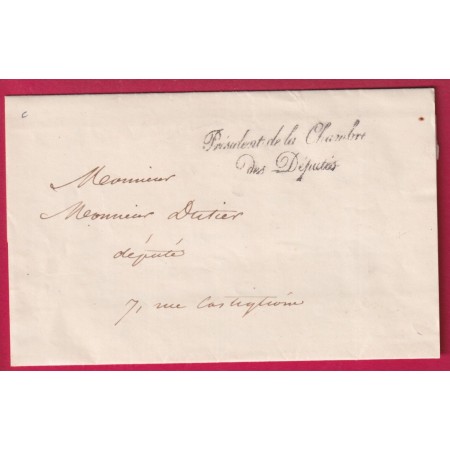 Président de la Chambre
des Députés
Monsieur
Monsieur Dutier
député
7, rue Castiglione